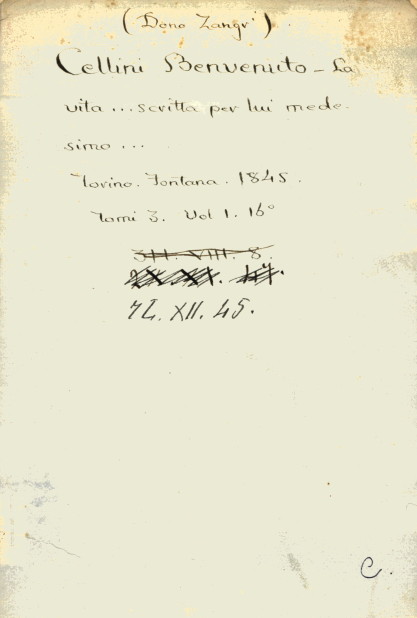 (Dono Zangrì).
Cellini Benvenuto - La
vita ... scritta per lui mede-
simo ...
Torino. Fontana. 1845.
Tomi 3. Vol 1. 16°
VIII. 8.
72. XII. 45.
C.